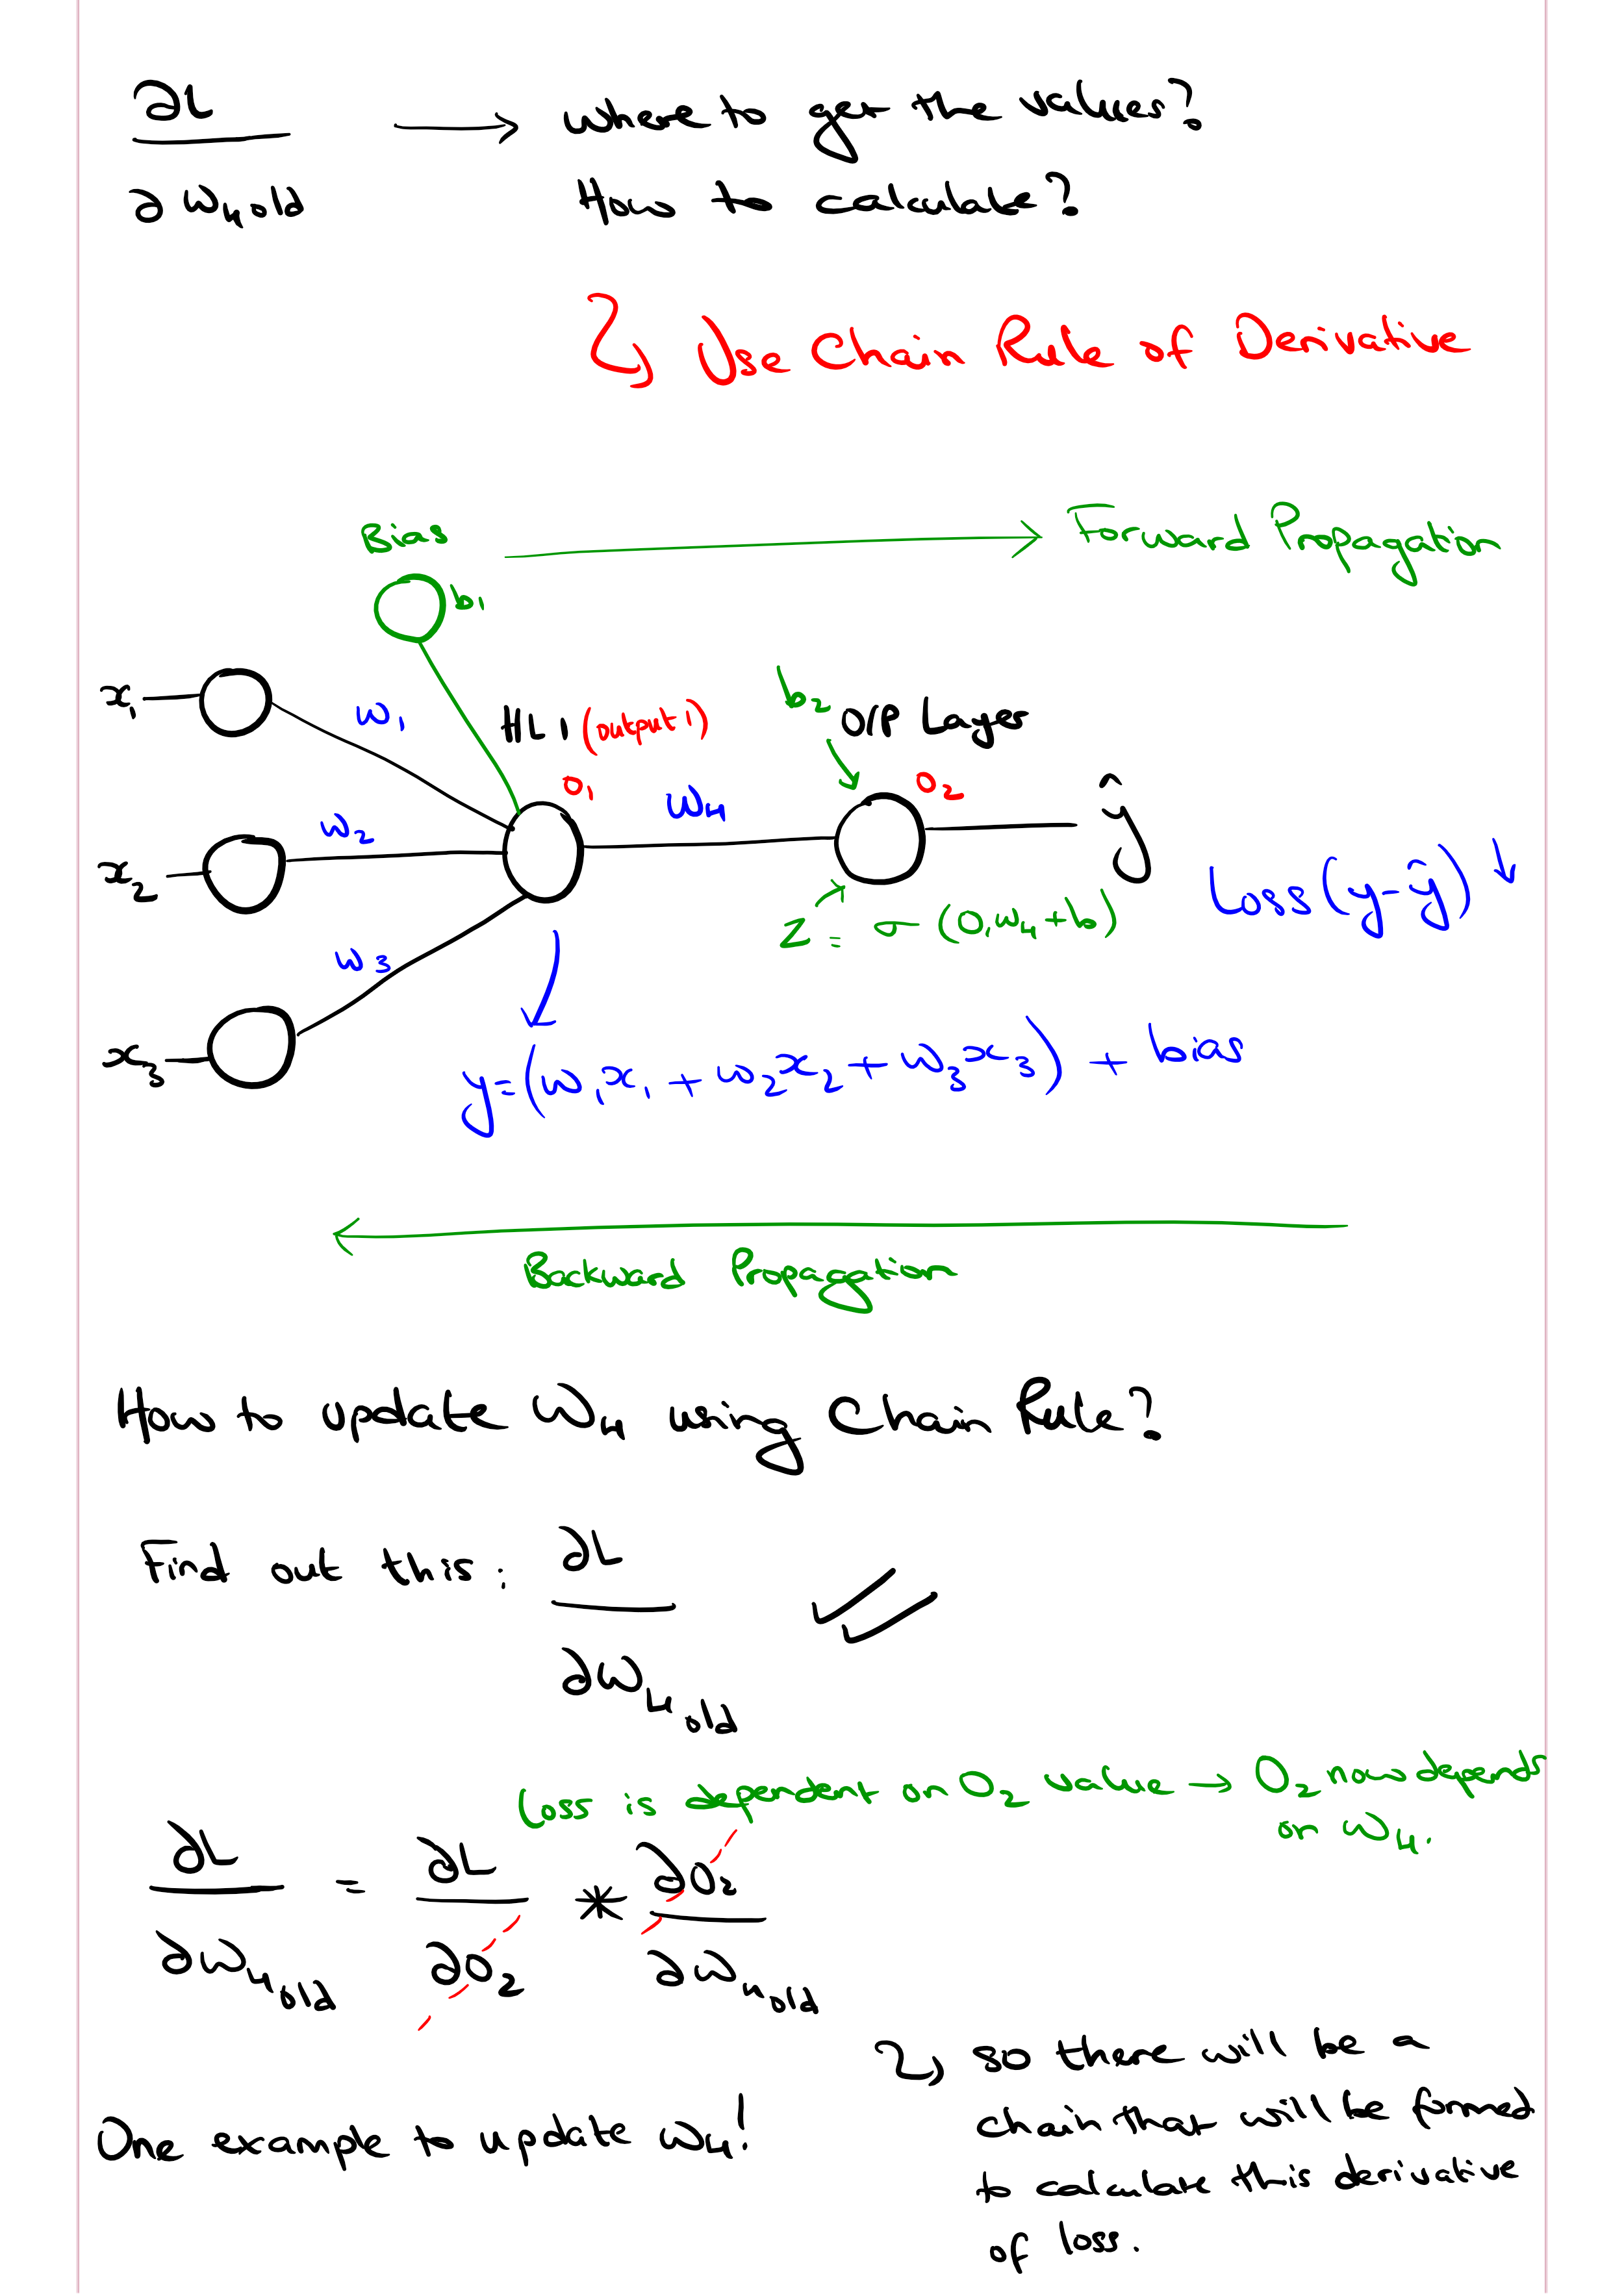 ∂L → where to get the values?
∂w₄old How to calculate?
Use Chain Rule of Derivative
Bias
Forward Propagation
b₁
x₁
w₁
HL1 (output 1)
b₂
O/P Layer
o₁
w₄
o₂
ŷ
x₂
w₂
z = σ (o₁w₄+b)
Loss (y-ŷ) ↓
w₃
x₃
y=(w₁x₁ + w₂x₂ + w₃x₃) + bias
Backward Propagation
How to update w₄ using Chain Rule?
Find out this: ∂L
∂w₄old
Loss is dependent on O₂ value → O₂ now depends
on w₄.
∂L = ∂L * ∂O₂
∂w₄old ∂O₂ ∂w₄old
so there will be a
chain that will be formed
to calculate this derivative
of loss.
One example to update w₄!